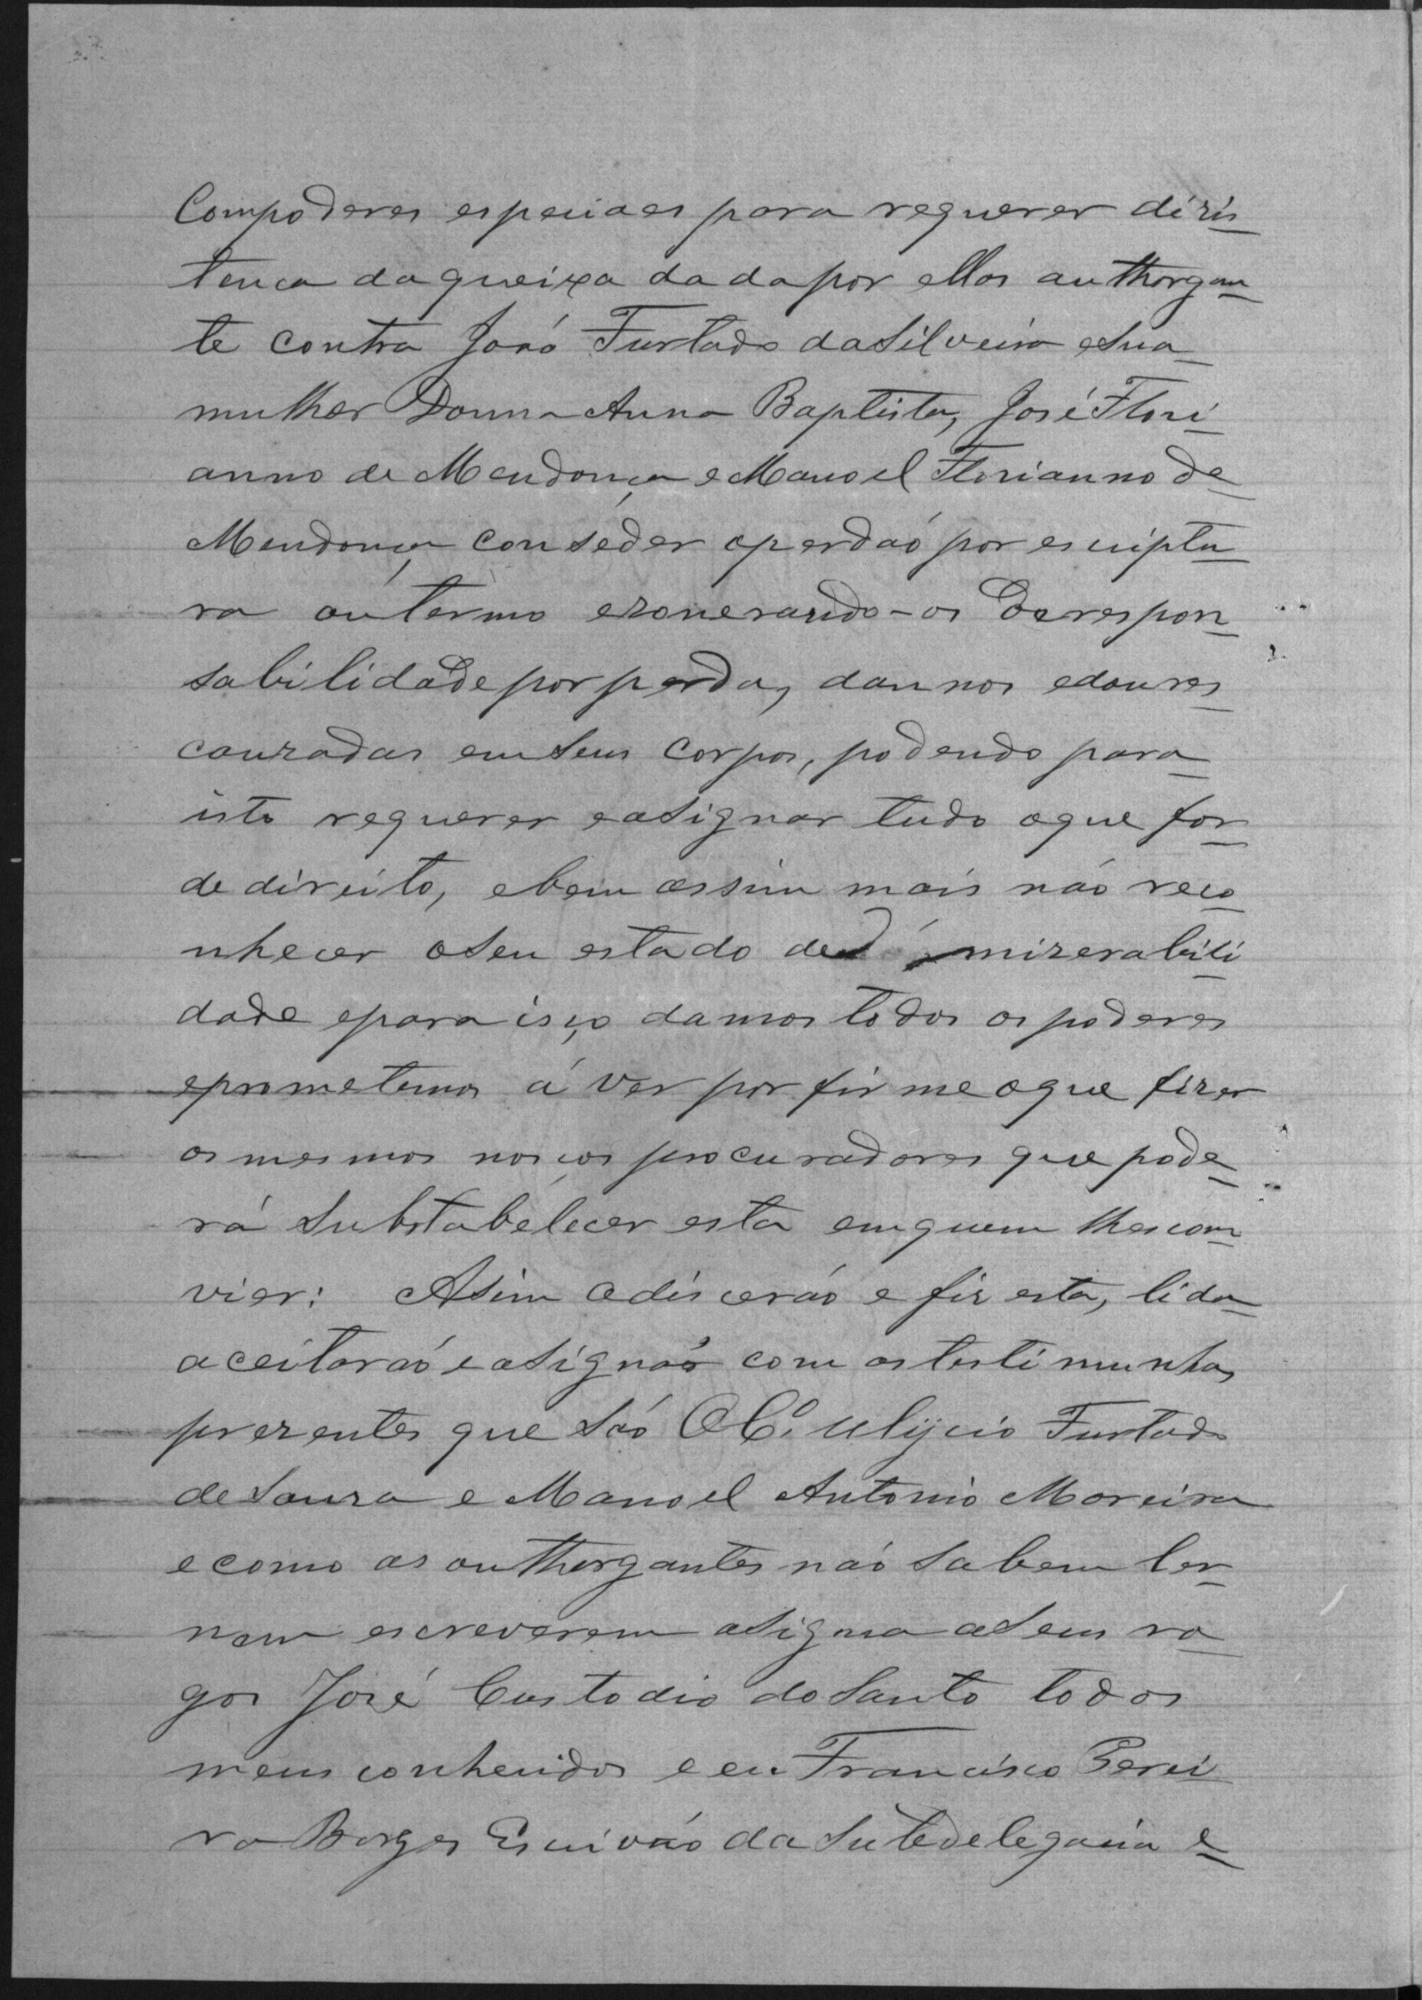 Compoderes espeiciaes para requerer dezis
tenca da queixa dada por ellas authorgan
te contra João Furtado da Silveira e sua
mulher Donna Anna Baptista, José Flori
anno de Mendonça e Manoel Florianno de
Mendonça conséder o perdaó por escriptu
ra ou termo ezonerando-os da respon
sabilidade por perdas, dannos e doures
cauzadas em seus corpos, podendo para
isto requerer e asignar tudo o que for
de direito, e bem assim mais não reco
nhecer o seu estado de mizerabili
dade e para isço damos todos os poderes
e prometemos á ver por firme o que fizer
os mesmos nosços procuradores que pode
rá substabelecer esta em quem lhes com
vier: Asim o discerão e fiz esta, lida
aceitaraó e asignaõ com as testimunhas
prezentes que são O Cº. Ulijcio Furtado
de Souza e Manoel Antonio Moreira
e como as outhorgantes naó sabem ler
nem escreverem asigna a seus ro
gos José Custodio do Santo todos
meus conhecidos e eu Francisco Perei
ra Borges Escivão da Subedelegacia e